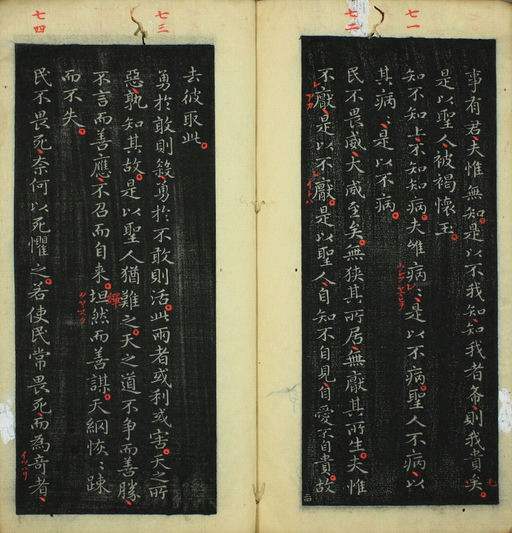 七一
七二
事有君夫惟無知是以不我知知我者希則我貴矣
是以聖人被褐懷玉
知不知上不知知病夫惟病〻是以不病聖人不病以
其病〻是以不病
民不畏威大威至矣無狭其所居無厭其所生夫惟
不厭是以不厭是以聖人自知不自見自愛不自貴故
七三
七四
去彼取此
勇於敢則殺勇於不敢則活此兩者或利或害天之所
惡孰知其故是以聖人猶難之天之道不争而善勝
不言而善應不召而自来坦然而善謀天網恢〻踈
而不失
繟
民不畏死奈何以死懼之若使民常畏死而為奇者